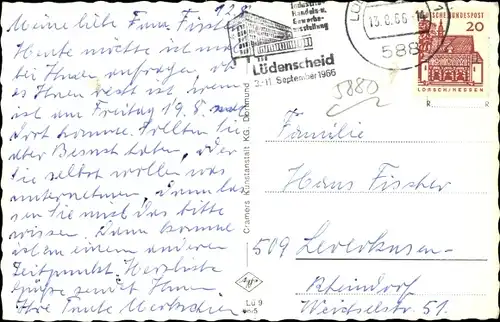 12.8.
Meine liebe Frau Fischer
Heute möchte ich mal
bei Ihnen anfragen, ob
es Ihnen recht ist, wenn
ich am Freitag 19.8. nach
dort komme. Sollten Sie
aber Besuch haben, oder
Sie selbst wollen was
unternehmen, dann las-
sen Sie mich das bitte
wissen. Dann komme
ich an einem anderen
Zeitpunkt. Herzliche
Grüße sendet Ihnen
Ihre Tante
Cramers Kunstanstalt KG. Dortmund
Lü 9
Industrie-
Handels-u.
Gewerbe-
ausstellung
Lüdenscheid
2-11. September 1966
13.8.66-14
588
DEUTSCHE BUNDESPOST
20
LORSCH/HESSEN
5880
Familie
Hans Fischer
509 Leverkusen-
Rheindorf
Weichselstr. 51.